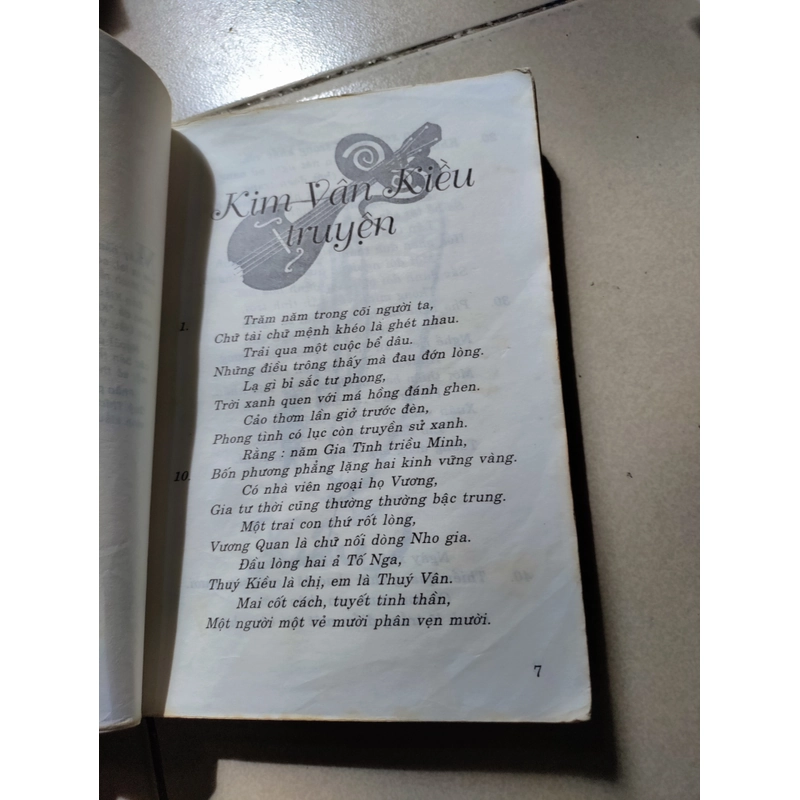 Kim Vân Kiều
truyện
1. Trăm năm trong cõi người ta,
Chữ tài chữ mệnh khéo là ghét nhau.
Trải qua một cuộc bể dâu.
Những điều trông thấy mà đau đớn lòng.
Lạ gì bỉ sắc tư phong,
Trời xanh quen với má hồng đánh ghen.
Cảo thơm lần giở trước đèn,
Phong tình có lục còn truyền sử xanh.
Rằng : năm Gia Tĩnh triều Minh,
10. Bốn phương phẳng lặng hai kinh vững vàng.
Có nhà viên ngoại họ Vương,
Gia tư thời cũng thường thường bậc trung.
Một trai con thứ rốt lòng,
Vương Quan là chữ nối dòng Nho gia.
Đầu lòng hai ả Tố Nga,
Thuý Kiều là chị, em là Thuý Vân.
Mai cốt cách, tuyết tinh thần,
Một người một vẻ mười phân vẹn mười.
7